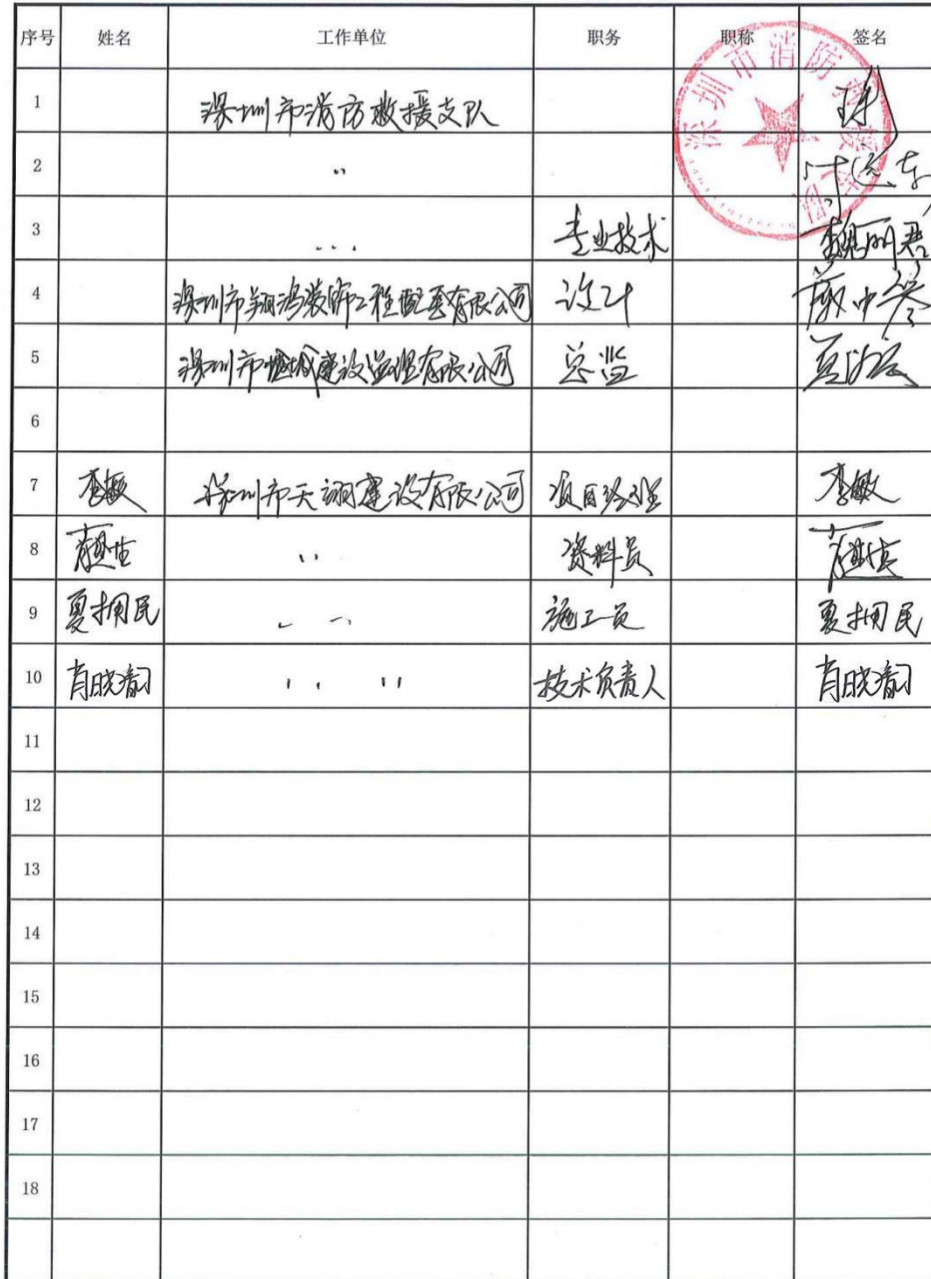 序号 姓名 工作单位 职务 职称 签名
1 深圳市消防救援支队
2 〃
3 〃 专业技术 魏丽君
4 深圳市翔鸿装饰工程配套有限公司 设计
5 深圳市 建设监理有限公司 总监
6
7 李敏 深圳市天翊建设有限公司 项目经理 李敏
8 〃 资料员
9 夏拥民 〃 施工员 夏拥民
10 肖晓韵 〃 〃 技术负责人 肖晓韵
11
12
13
14
15
16
17
18
深圳市消防救援支队